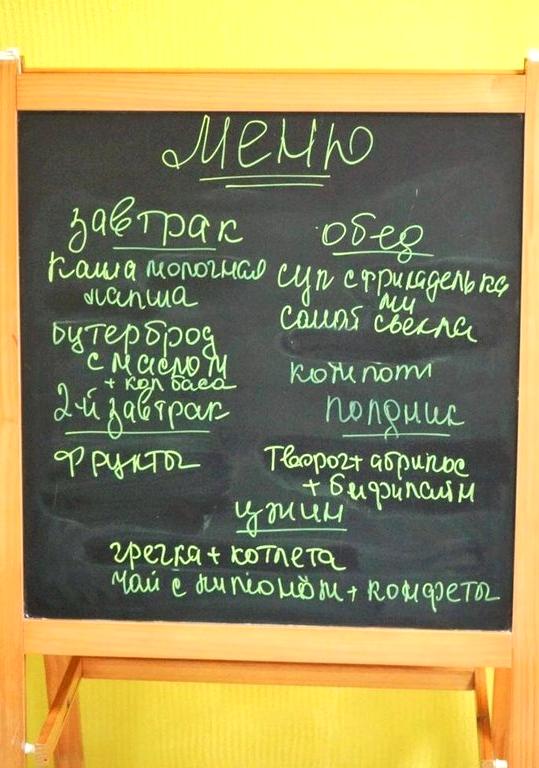 Меню
Завтрак
каша молочная
лапша
бутерброд
с маслом
+ колбаса
2-й завтрак
фрукты
обед
суп с фрикаделька
ми
салат свекла
компот
полдник
творог + абрикос
+ бифилайн
ужин
гречка + котлета
чай с лимоном + конфеты